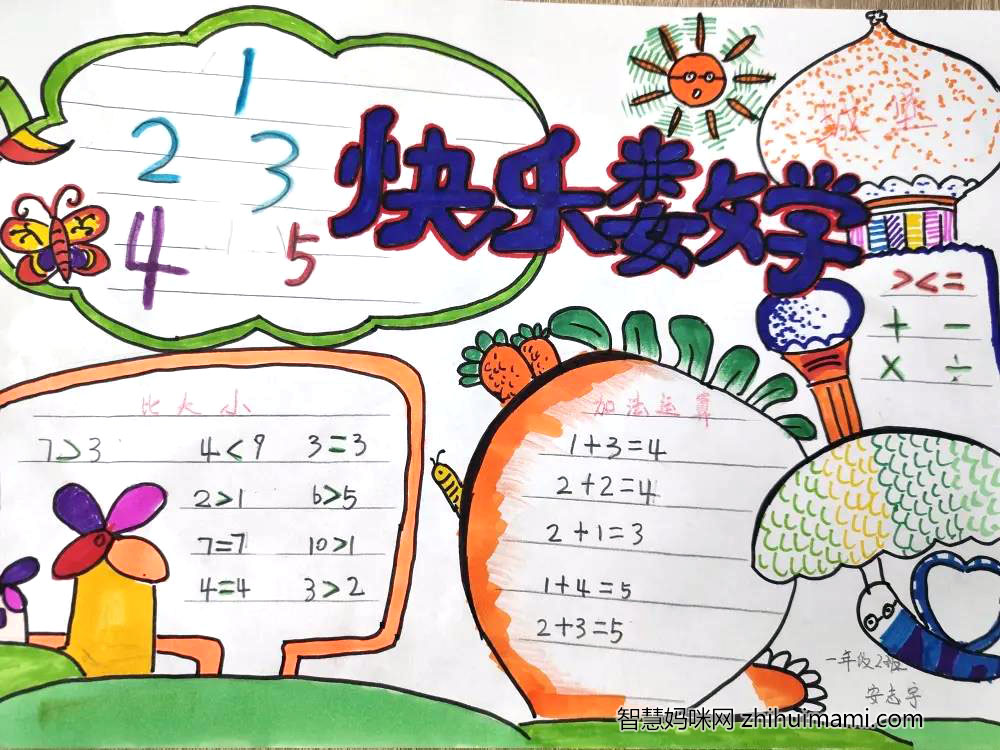 1
2 3
4 5
快乐数学
> < =
+ -
× ÷
比大小
7>3 4<9 3=3
2>1 6>5
7=7 10>1
4=4 3>2
加法运算
1+3=4
2+2=4
2+1=3
1+4=5
2+3=5
一年级2班
智慧妈咪网 zhihuimami.com